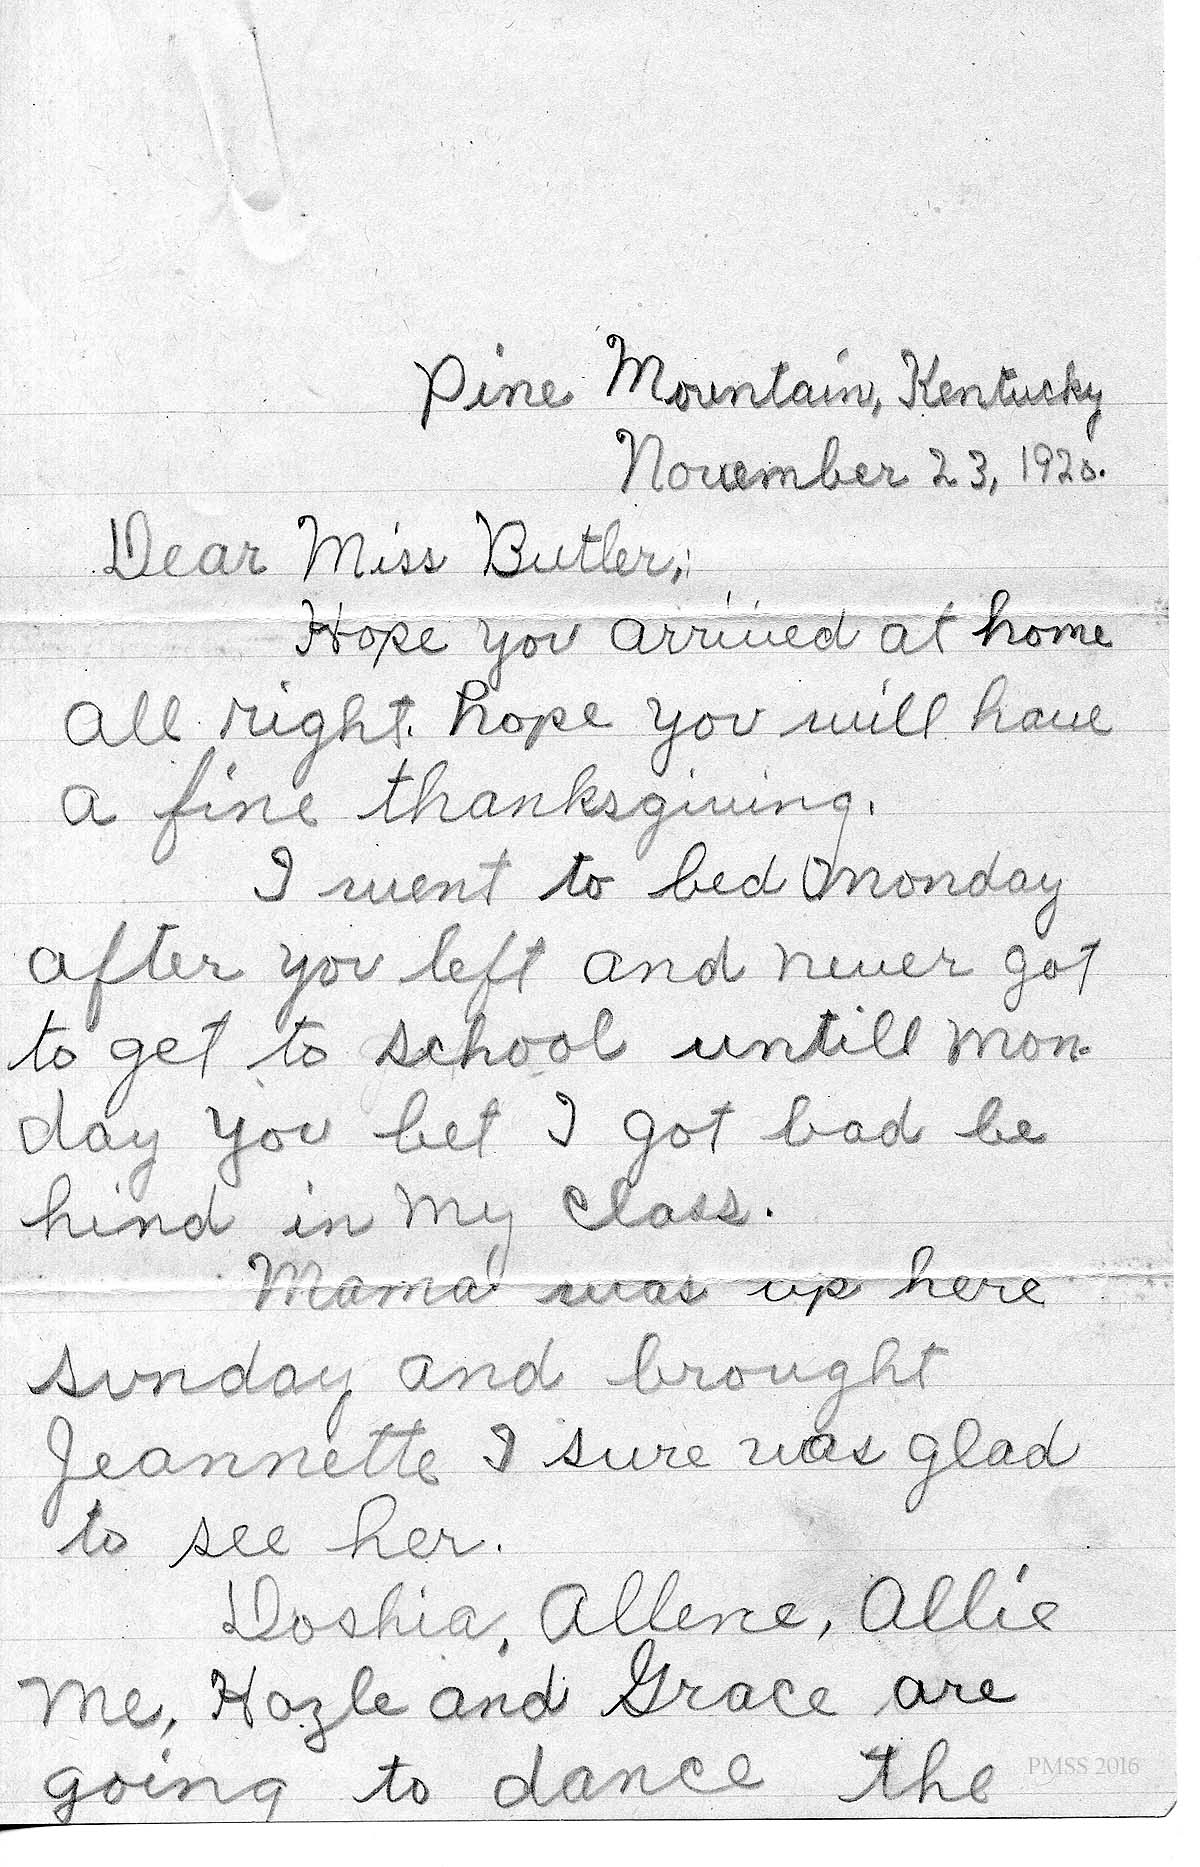 Pine Mountain, Kentucky
November 23, 1920.
Dear Miss Butler,
Hope you arrived at home
all right. hope you will have
a fine thanksgiving.
I went to bed monday
after you left and never got
to get to school untill Mon-
day you bet I got bad be
hind in my class.
Mama was up here
sunday and brought
Jeannette I sure was glad
to see her.
Doshia, Allene, Allie
Me, Hazle and Grace are
going to dance the
PMSS 2016